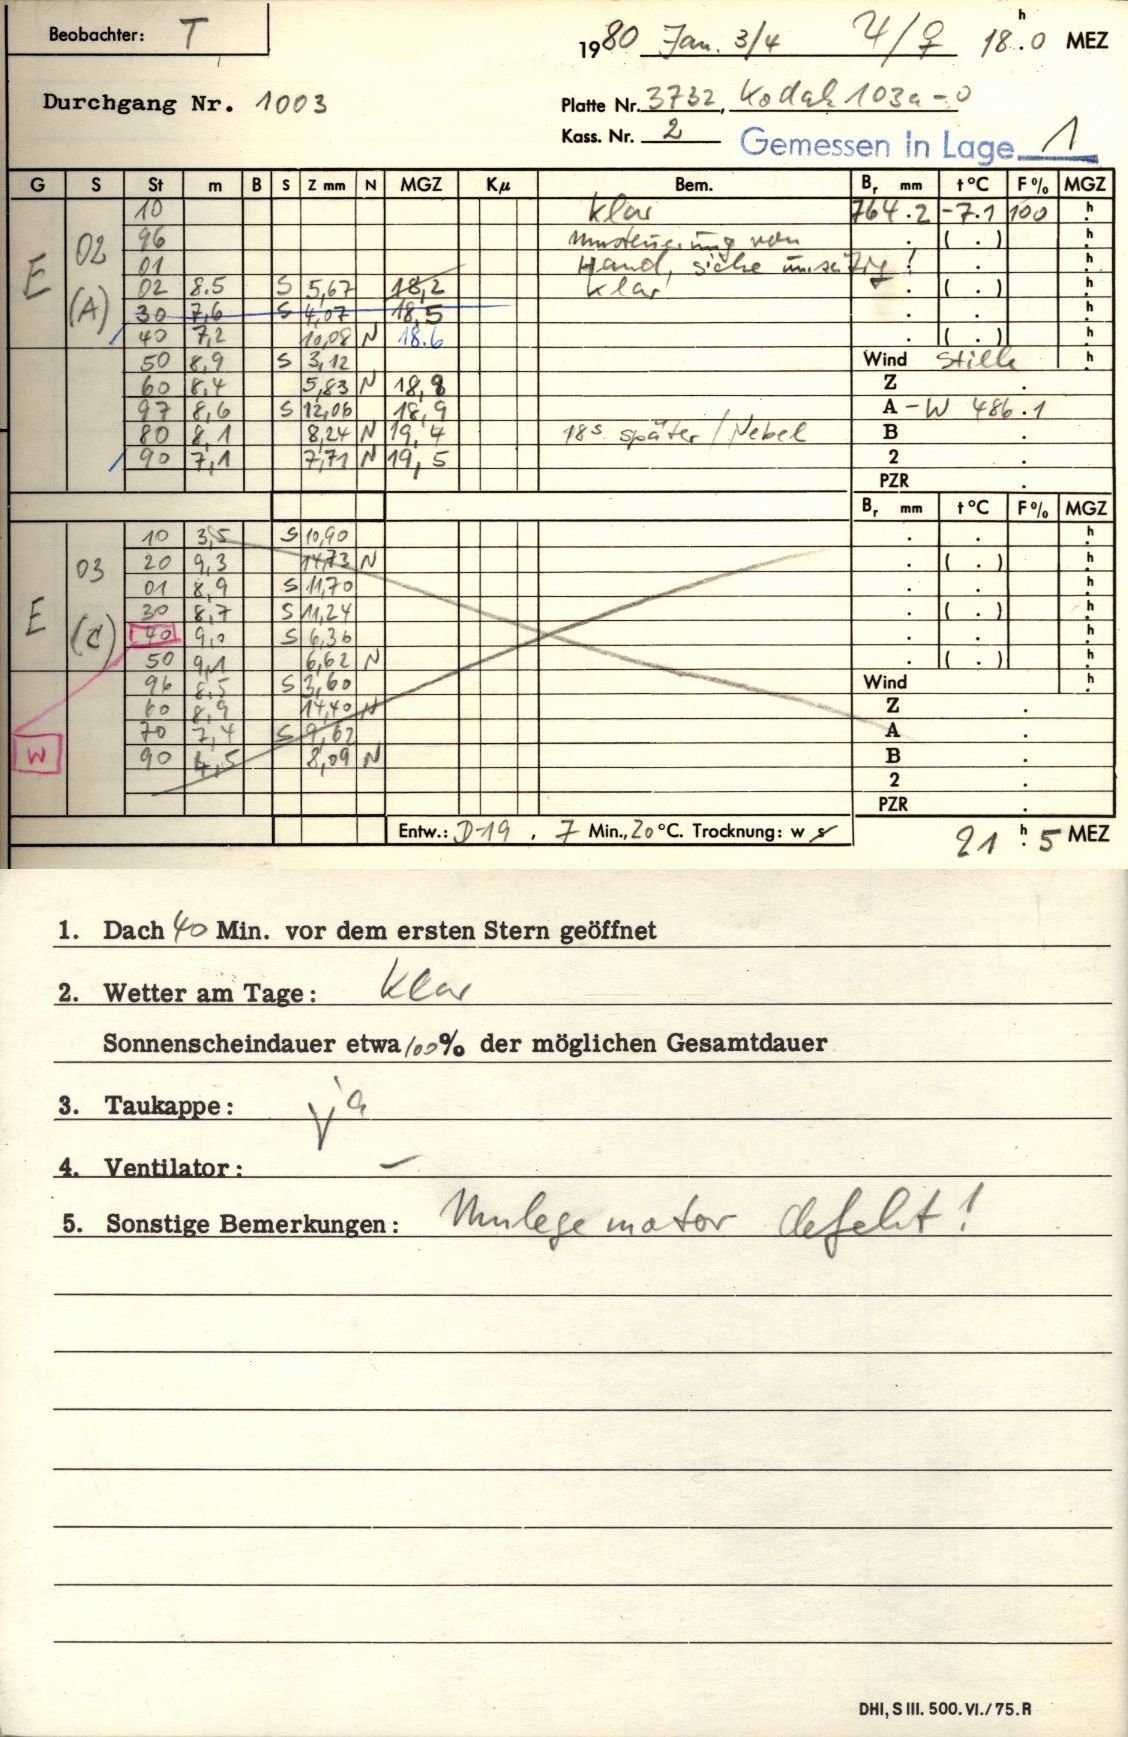 Beobachter: T
1980 Jan. 3/4 ♃/♀ 18.h0 MEZ
Durchgang Nr. 1003
Platte Nr. 3732, Kodak 103a-0
Kass. Nr. 2 Gemessen in Lage 1
G S St m B S Z mm N MGZ Kμ Bem. Br mm t°C F% MGZ
E 02 (A)
10 klar 764.2 -7.1 100 h
96 von ( . ) h
01 Hand, ! . h
02 8.5 S 5,67 18,2 klar ( . ) h
30 7,6 S 4,07 18,5 . h
40 7,2 10,08 N 18.6 ( . ) h
50 8,9 S 3,12 Wind Stille h
60 8,4 5,83 N 18,8 Z .
97 8,6 S 12,06 18,9 A - W 486.1
80 8,1 8,24 N 19,4 18s später / Nebel B .
90 7,1 7,71 N 19,5 2 .
PZR .
Br mm t°C F% MGZ
E 03 (C)
10 3,5 S 10,90 . h
20 9,3 14,73 N ( . ) h
01 8,9 S 11,70 . h
30 8,7 S 11,24 ( . ) h
40 9,0 S 6,36 . h
50 9,1 6,62 N ( . ) h
96 8,5 S 3,60 Wind h
60 8,9 14,40 N Z .
70 7,4 S 9,62 A
W 90 4,5 8,09 N B .
2 .
PZR .
Entw.: D19, 7 Min., 20°C. Trocknung: w s
21.h5 MEZ
1. Dach 40 Min. vor dem ersten Stern geöffnet
2. Wetter am Tage: klar
Sonnenscheindauer etwa 100% der möglichen Gesamtdauer
3. Taukappe: ja
4. Ventilator: –
5. Sonstige Bemerkungen: Umlegemotor defekt!
DHI, S III. 500. VI./75. R